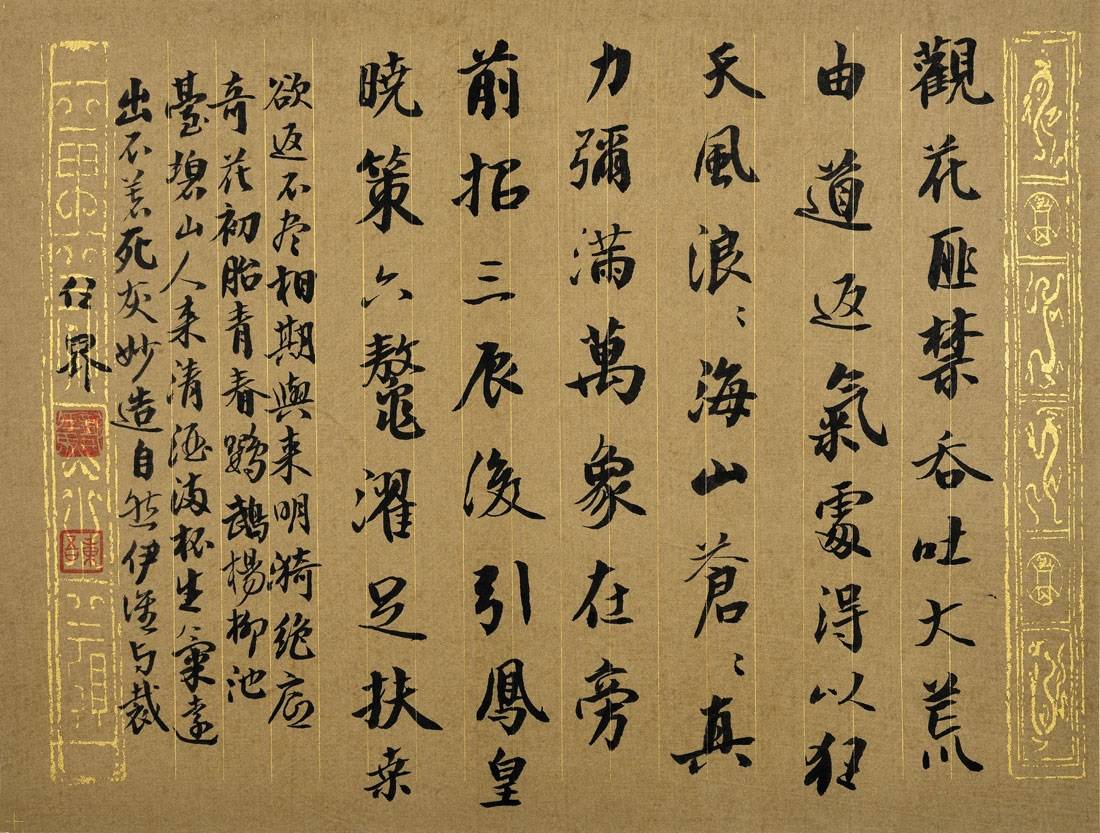 觀花匪禁吞吐大荒
由道返氣處得以狂
天風浪〻海山蒼〻真
力彌满萬象在旁
前招三辰後引鳳皇
曉策六鼇濯足扶桒
欲返不尽相期與来明漪绝底
奇花初胎青春鸚鵡楊柳池
臺碧山人来清酒满杯生氣遠
出不着死灰妙造自然伊誰与裁